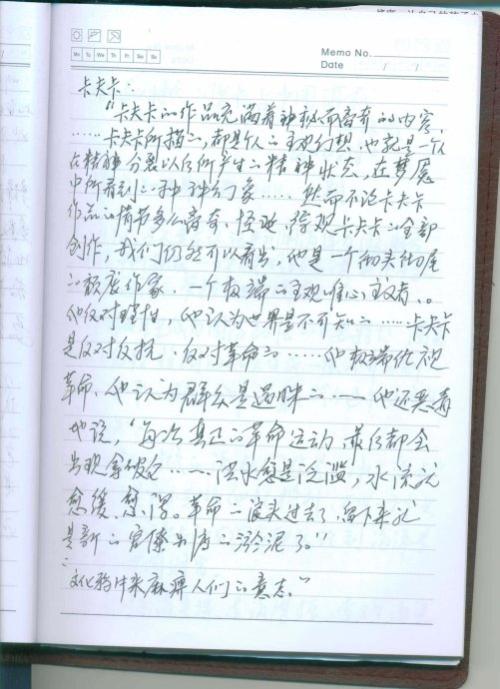 Memo No.
Date / /
Mo Tu We Th Fr Sa Su
卡夫卡：
"卡夫卡的作品充满着神秘而离奇的内容，
……卡夫卡所描的，都是个人的主观幻想，也就是一个人
在精神分裂以后所产生的精神状态，在梦魇
中所看到的种种幻象……然而不论卡夫卡
作品的情节多么离奇、怪诞，综观卡夫卡的全部
创作，我们仍然可以看出，他是一个彻头彻尾
的颓废作家，一个极端的主观唯心主义者。
他反对理性，他认为世界是不可知的……卡夫卡
是反对反抗，反对革命的……他极端仇视
革命，他认为群众是愚昧的……他还恶毒
地说，'每次真正的革命运动，最后都会
出现拿破仑……洪水愈是泛滥，水流就
愈缓、愈浑。革命的浪头过去了，留下来的
是新的官僚制度的淤泥了。'"
文化鸦片来麻痹人们的意志。"